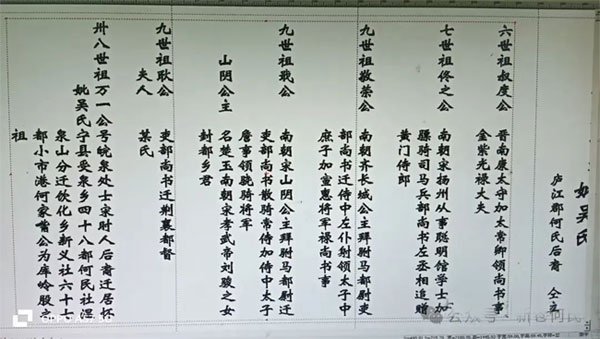 妣吴氏
庐江郡何氏后裔 仝立
六世祖叔度公 晋南康太守加太常卿领尚书事
金紫光禄大夫
七世祖佟之公 南朝宋扬州从事聪明馆学士加
骠骑司马兵部尚书左丞相追赠
黄门侍郎
九世祖敬荣公 南朝齐长城公主拜驸马都尉吏
部尚书迁侍中左仆射领太子中
庶子加宣惠将军禄尚书事
九世祖戢公 南朝宋山阴公主拜驸马都尉迁
吏部尚书散骑常侍加侍中太子
詹事领骁骑将军
山阴公主 名楚玉南朝宋孝武帝刘骏之女
封都乡君
九世祖耿公 吏部尚书迁荆襄都督
夫人 某氏
卅八世祖万一公 号皖泉处士宋时人后裔迁居怀
妣吴氏 宁县受泉乡四十八都何氏社湿
泉山分迁钦化乡新义社六十七
都小市港何家嘴公为库岭股之
祖
公众号·新邑何氏